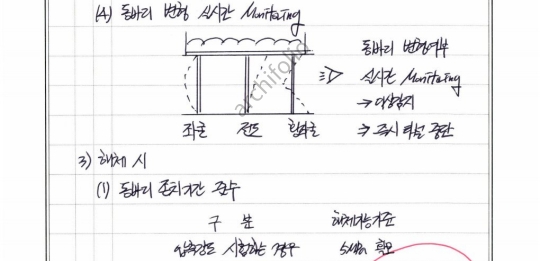 (4) 동바리 변형 실시간 Monitoring
동바리 변형여부
실시간 Monitoring
→ 이상감지
→ 즉시 타설 중단
좌굴 전도 휨좌굴
archifolio
3) 해체 시
(1) 동바리 존치기간 준수
구 분 해체가능기준
압축강도 시험하는 경우 5MPa 확보